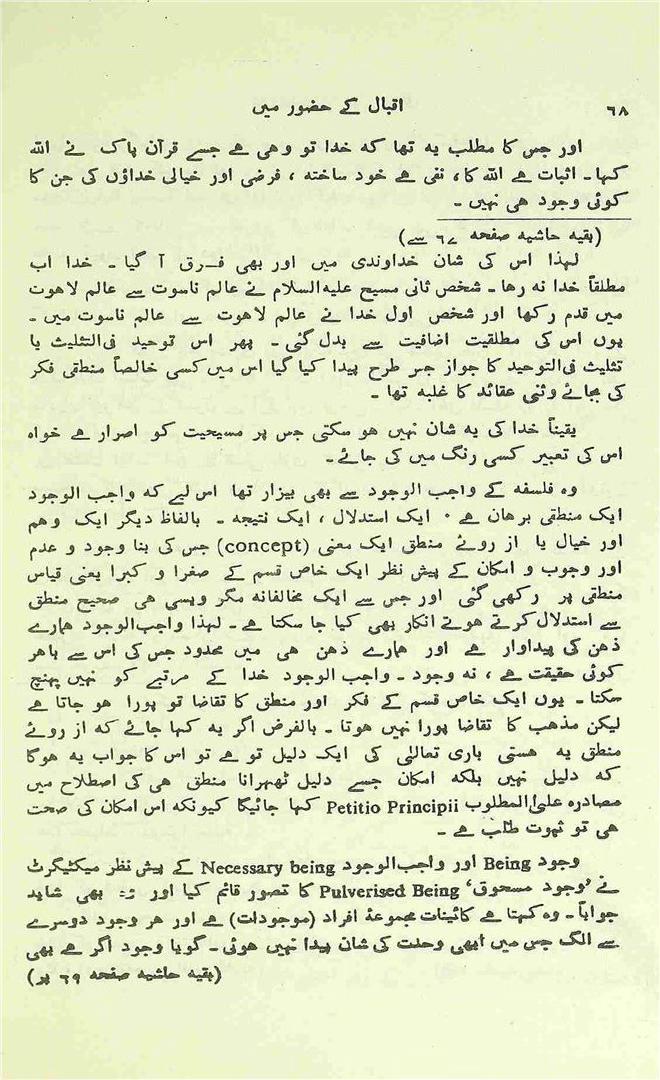 ٦٨
اقبال کے حضور میں
اور جس کا مطلب یہ تھا کہ خدا تو وهی هے جسے قرآن پاک نے اللہ
کہا۔ اثبات هے اللہ کا، نفی هے خود ساختہ ، فرضی اور خیالی خداؤں کی جن کا
کوئی وجود هی نہیں ۔
(بقیہ حاشیہ صفحہ ٦٧ سے)
لہذا اس کی شان خداوندی میں اور بھی فرق آ گیا ۔ خدا اب
مطلقاً خدا نہ رها۔ شخص ثانی مسیح علیہ السلام نے عالم ناسوت سے عالم لاهوت
میں قدم رکھا اور شخص اول خدا نے عالم لاهوت سے عالم ناسوت میں ۔
یوں اس کی مطلقیت اضافیت سے بدل گئی ۔ پھر اس توحید فی التثلیث یا
تثلیث فی التوحید کا جواز جس طرح پیدا کیا گیا اس میں کسی خالصاً منطقی فکر
کی بجائے وثنی عقائد کا غلبہ تھا ۔
یقیناً خدا کی یہ شان نہیں هو سکتی جس پر مسیحیت کو اصرار هے خواہ
اس کی تعبیر کسی رنگ میں کی جائے۔
وہ فلسفہ کے واجب الوجود سے بھی بیزار تھا اس لیے کہ واجب الوجود
ایک منطقی برهان هے ، ایک استدلال ، ایک نتیجہ ۔ بالفاظ دیگر ایک وهم
اور خیال یا از روئے منطق ایک معنی (concept) جس کی بنا وجود و عدم
اور وجوب و امکان کے پیش نظر ایک خاص قسم کے صغرا و کبرا یعنی قیاس
منطقی پر رکھی گئی اور جس سے ایک مخالفانہ مگر ویسی هی صحیح منطق
سے استدلال کرتے هوئے انکار بھی کیا جا سکتا هے۔ لہذا واجب الوجود همارے
ذهن کی پیداوار هے اور همارے ذهن هی میں محدود جس کی اس سے باهر
کوئی حقیقت هے ، نہ وجود ۔ واجب الوجود خدا کے مرتبے کو نہیں پہنچ
سکتا ۔ یوں ایک خاص قسم کے فکر اور منطق کا تقاضا تو پورا هو جاتا هے
لیکن مذهب کا تقاضا پورا نہیں هوتا ۔ بالفرض اگر یہ کہا جائے کہ از روئے
منطق یہ هستی باری تعالیٰ کی ایک دلیل تو هے تو اس کا جواب یہ هوگا
کہ دلیل نہیں بلکہ امکان جسے دلیل ٹھہرانا منطق هی کی اصطلاح میں
مصادرہ علی المطلوب Petitio Principii کہا جائیگا کیونکہ اس امکان کی صحت
هی تو ثبوت طلب هے ۔
وجود Being اور واجب الوجود Necessary being کے پیش نظر میکٹیگرٹ
نے ’وجود مسحوق‘ Pulverised Being کا تصور قائم کیا اور یہ بھی شاید
جواباً۔ وہ کہتا هے کائینات مجموعۂ افراد (موجودات) هے اور هر وجود دوسرے
سے الگ جس میں ابھی وحدت کی شان پیدا نہیں هوئی۔ گویا وجود اگر هے بھی
(بقیہ حاشیہ صفحہ ٦٩ پر)